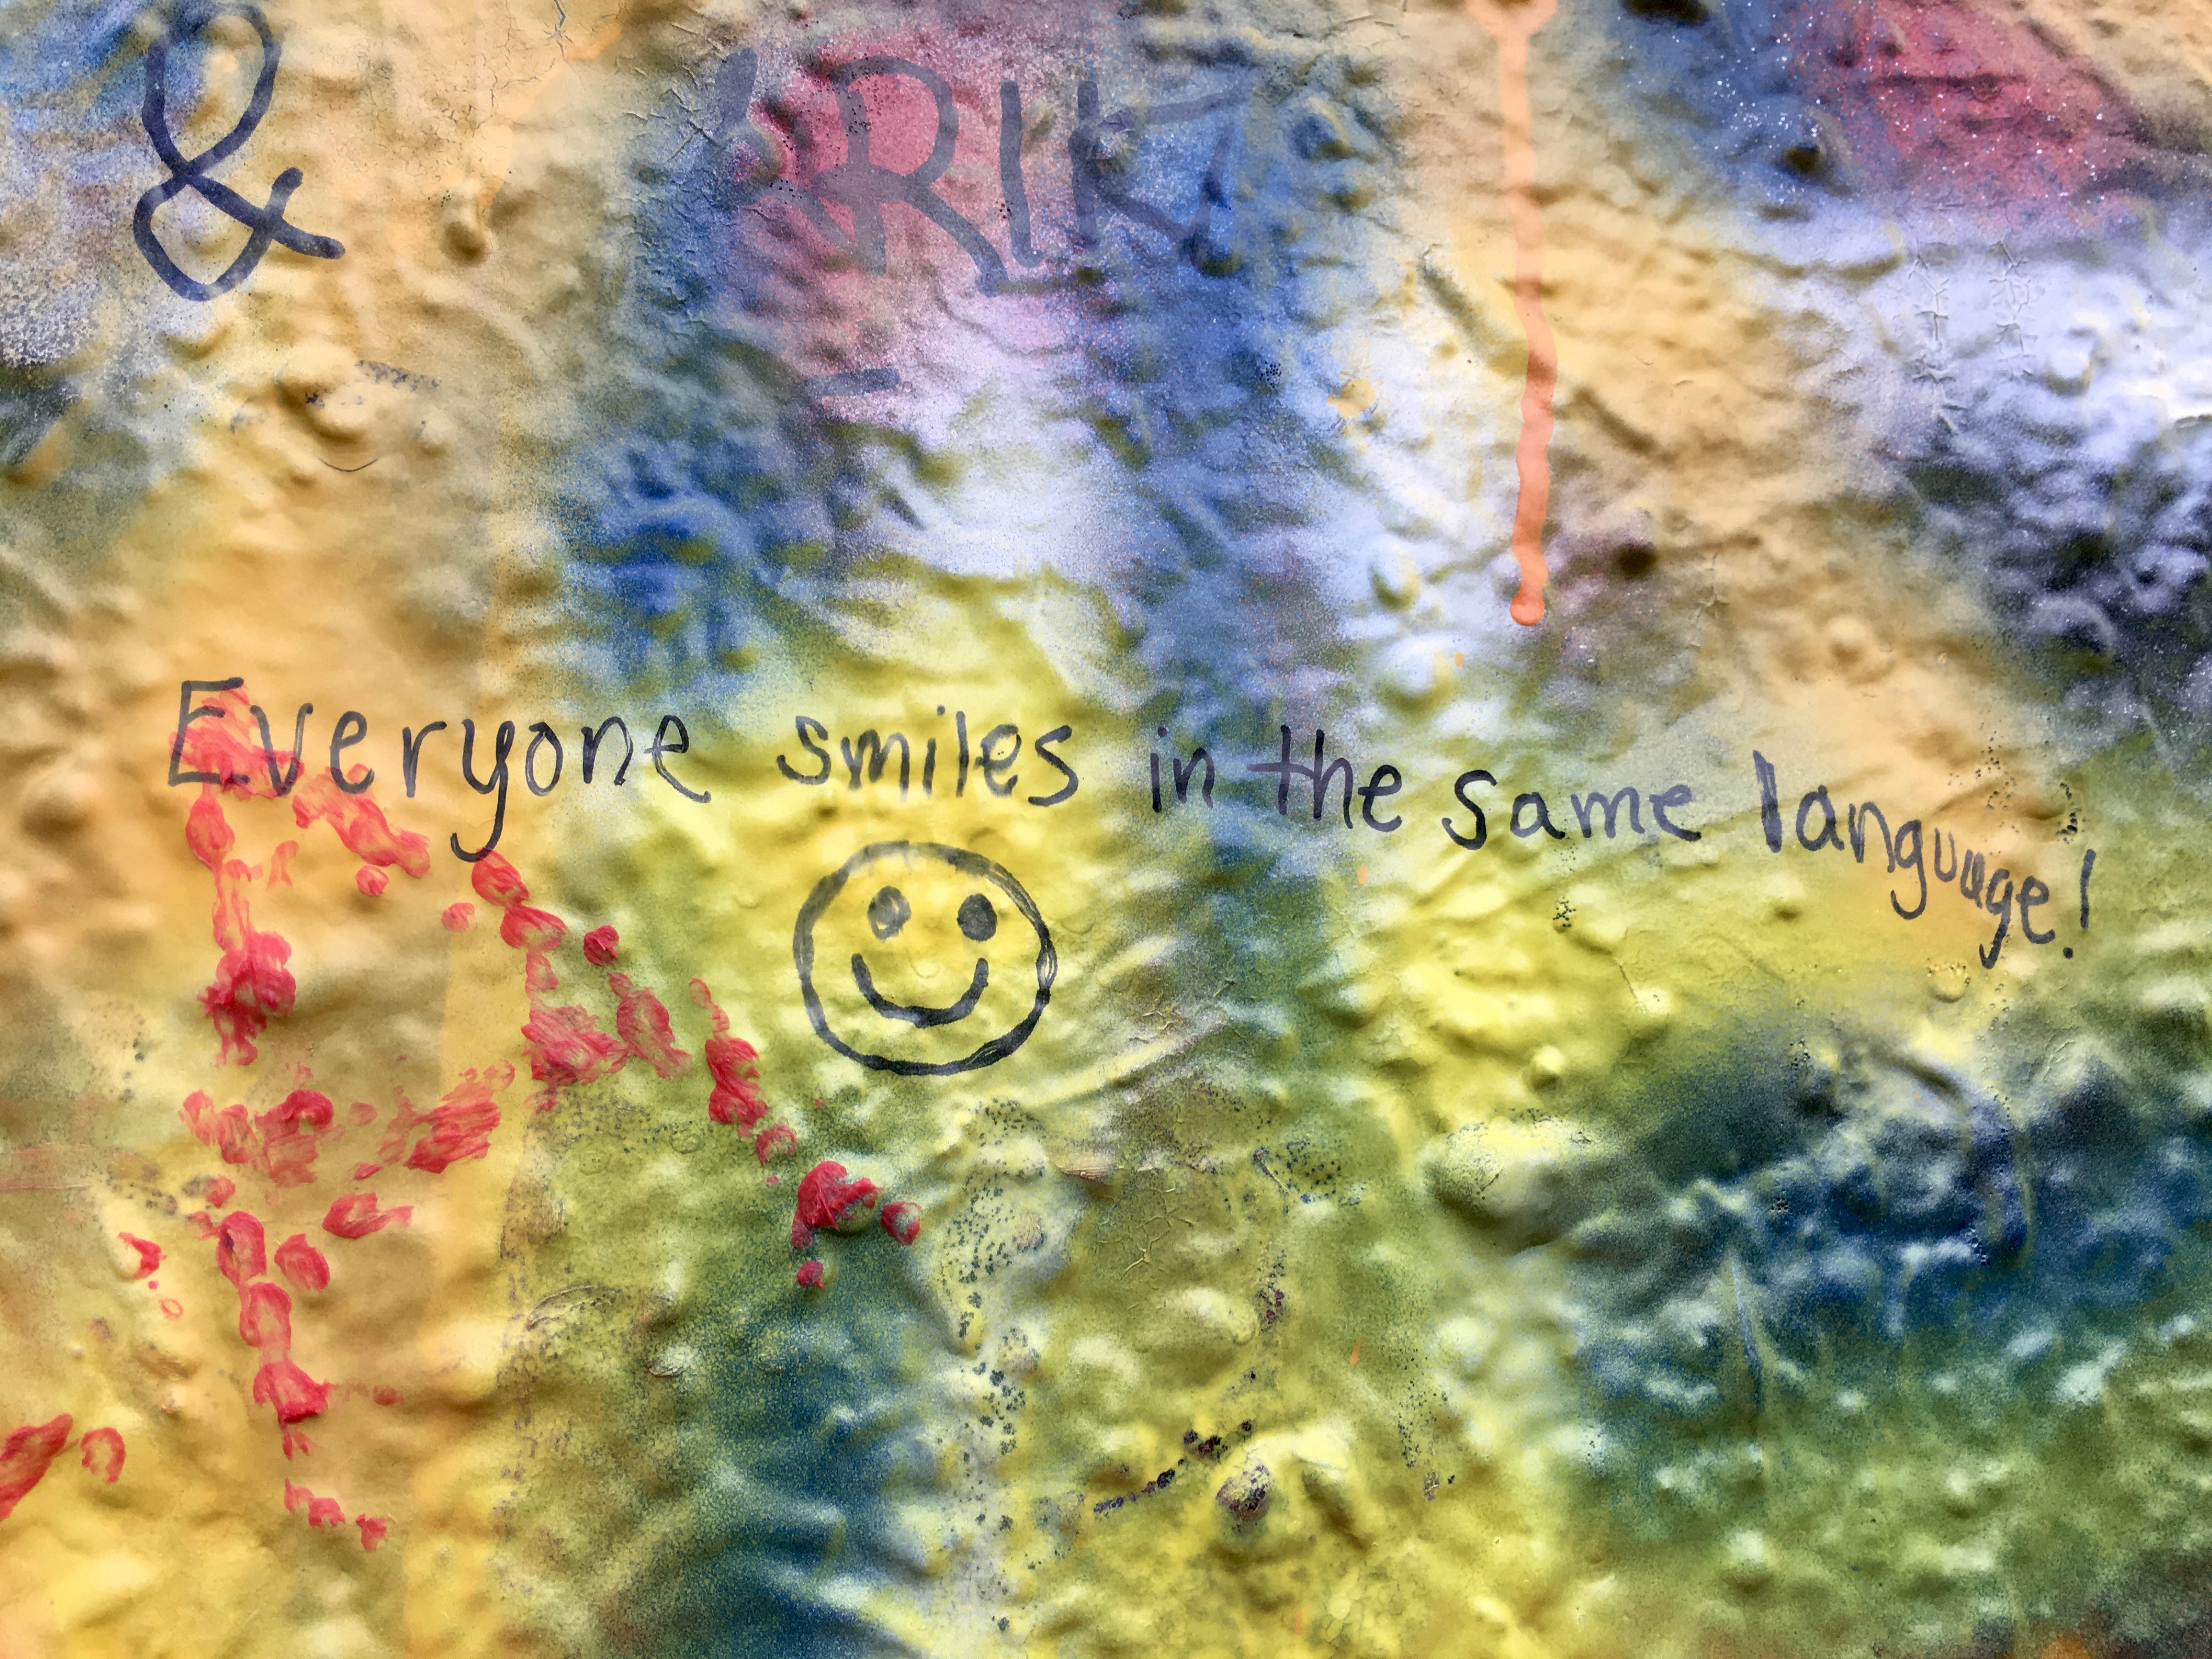 &
Everyone smiles in the same language!